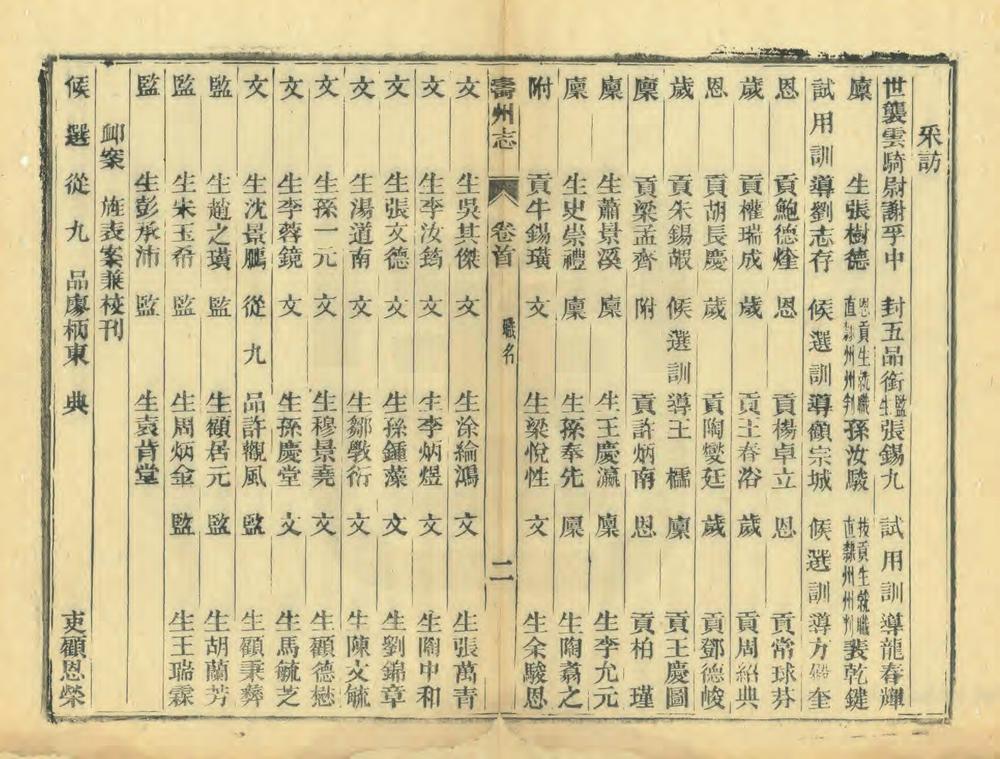 采訪
世襲雲騎尉謝孚中 封五品銜監生張錫九 試用訓導龍春輝
廩生張樹德 恩貢生就職直隸州州判孫汝駿 拔貢生就職直隸州州判裴乾鍵
試用訓導劉志存 候選訓導顧宗城 候選訓導方殿奎
恩貢鮑德煃 恩貢楊卓立 恩貢常球芬
歲貢權瑞成 歲貢王春浴 歲貢周紹典
恩貢胡長慶 歲貢陶燮廷 歲貢鄧德峻
歲貢朱錫嘏 候選訓導王櫺 廩貢王慶圖
廩貢梁孟齊 附貢許炳南 恩貢柏瑾
廩生蕭景溪 廩生王慶瀛 廩生李允元
廩生史崇禮 廩生孫奉先 廩生陶翥之
附貢牛錫璜 文生梁悅性 文生余駿恩
壽州志 卷首 職名 二
文生吳其傑 文生涂綸鴻 文生張萬青
文生李汝筠 文生李炳煜 文生陶中和
文生張文德 文生孫鍾藻 文生劉錦章
文生湯道南 文生鄒戰衍 文生陳文毓
文生孫一元 文生穆景堯 文生顧德懋
文生李蓉鏡 文生孫慶堂 文生馬毓芝
文生沈景鵬 從九品許觀風 監生顧秉彝
監生趙之璜 監生顧居元 監生胡蘭芳
監生宋玉希 監生周炳金 監生王瑞霖
監生彭承沛 監生袁肯堂
卹案 旌表案兼校刊
候選從九品廖柄東 典吏顧恩榮